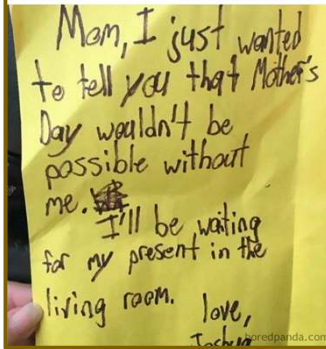 Mom, I just wanted
to tell you that Mother's
Day wouldn't be
possible without
me.
I'll be waiting
for my present in the
living room.
love,
Joshua
boredpanda.com